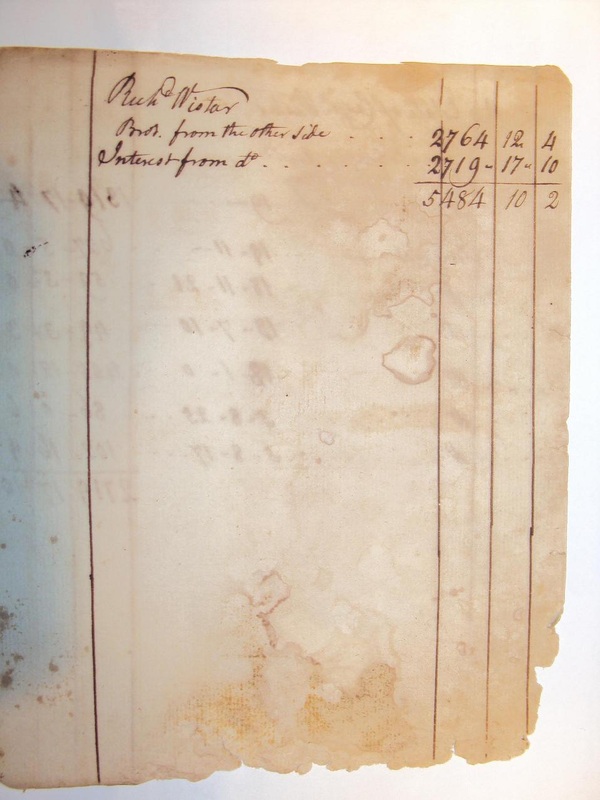 Rich.d Wistar
Brot. from the other side . . . . 2764 12 4
Interest from do . . . . . . 2719 - 17 - 10
5484 10 2